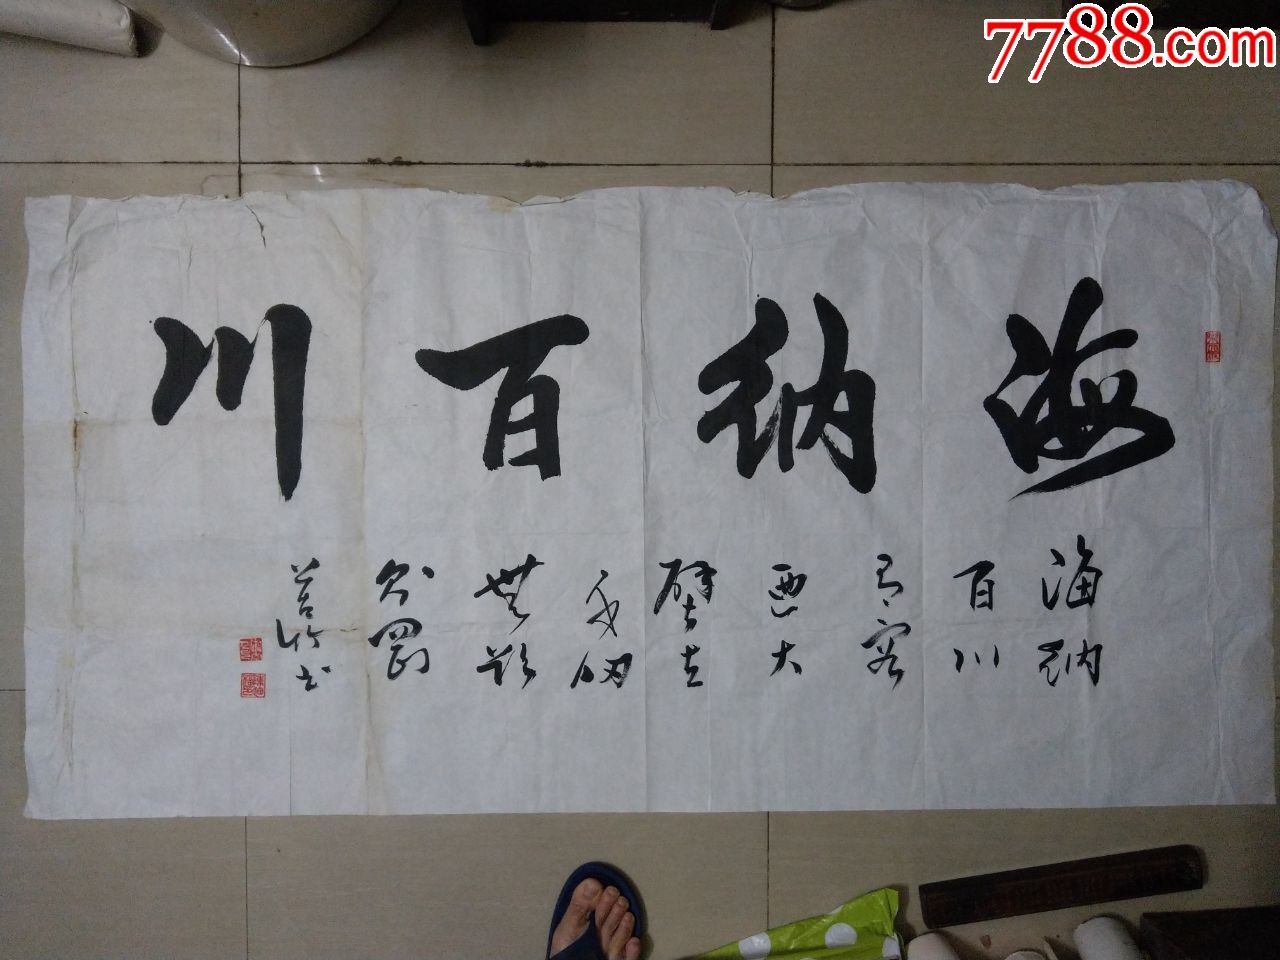 7788.com
海纳百川
海纳
百川
有容
迺大
壁立
千仞
無欲
则剛
竹书